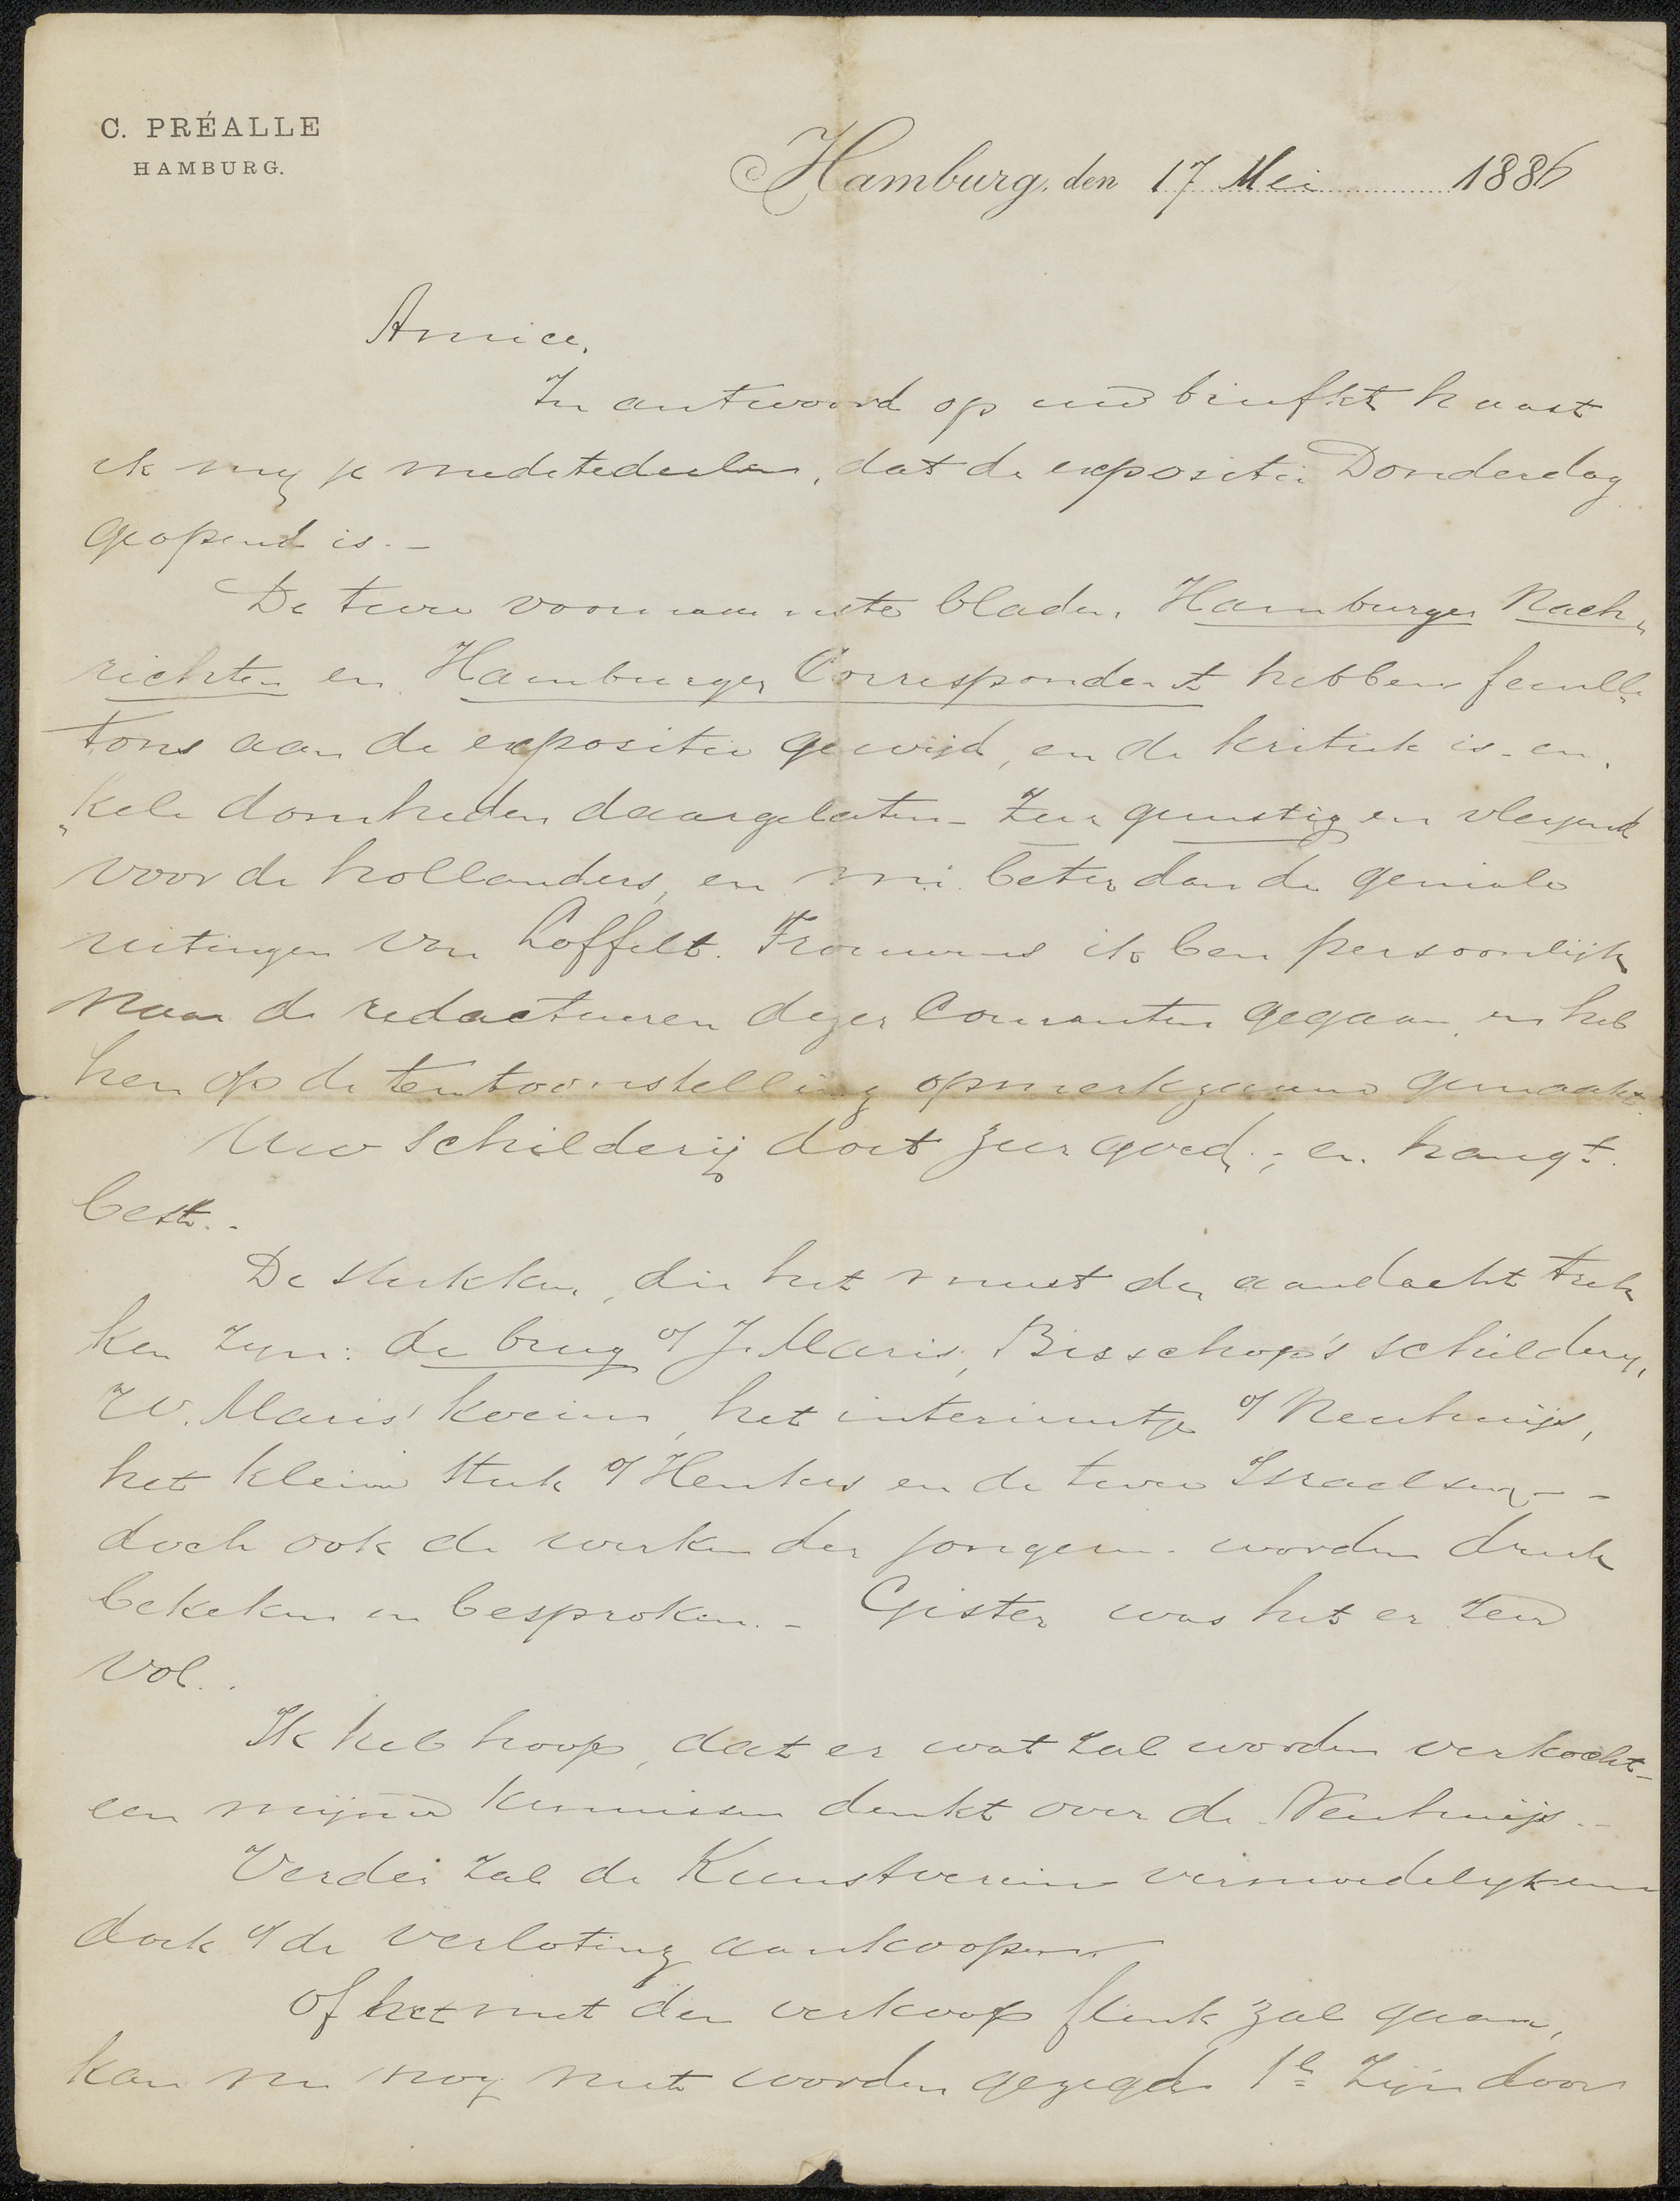 C. PRÉALLE
HAMBURG.
Hamburg, den 17 Mei 1886
Amice,
In antwoord op uw briefkt haast
ik my je medetedeelen, dat de expositie Donderdag
geopend is. -
De twee voornaamste bladen, Hamburger Nach„
richten en Hamburger Correspondent hebben feuille„
tons aan de expositie gewijd, en de kritiek is - en„
„kele domheden daargelaten - zeer gunstig en vleyend
voor de hollanders, en mi. beter dan de geniale
uitingen van Loffelt. Trouwens ik ben persoonlijk
naar de redacteuren dezer Couranten gegaan, en heb
hen op de tentoonstelling opmerkzaam gemaakt.
Uw schilderij doet zeer goed; en hangt
best. -
De stukken, die het meest de aandacht trek
ken zijn: de brug v/ J. Maris, Bisschop's schildery,
W. Maris' koeien, het interieurtje v/ Neuhuijs,
het kleine stuk v/ Henkes en de twee Israelsen - -
doch ook de werken der jongeren worden druk
bekeken en besproken. - Gister was het er zeer
vol. .
Ik heb hoop, dat er wat zal worden verkocht -
een mijner kennissen denkt over de Neuhuijs. -
Verder zal de Kunstverein vermoedelyk een
doek v/ de verloting aankoopen
Of het met den verkoop flink zal gaan,
kan nu nog niet worden gezegd. 1e zijn door